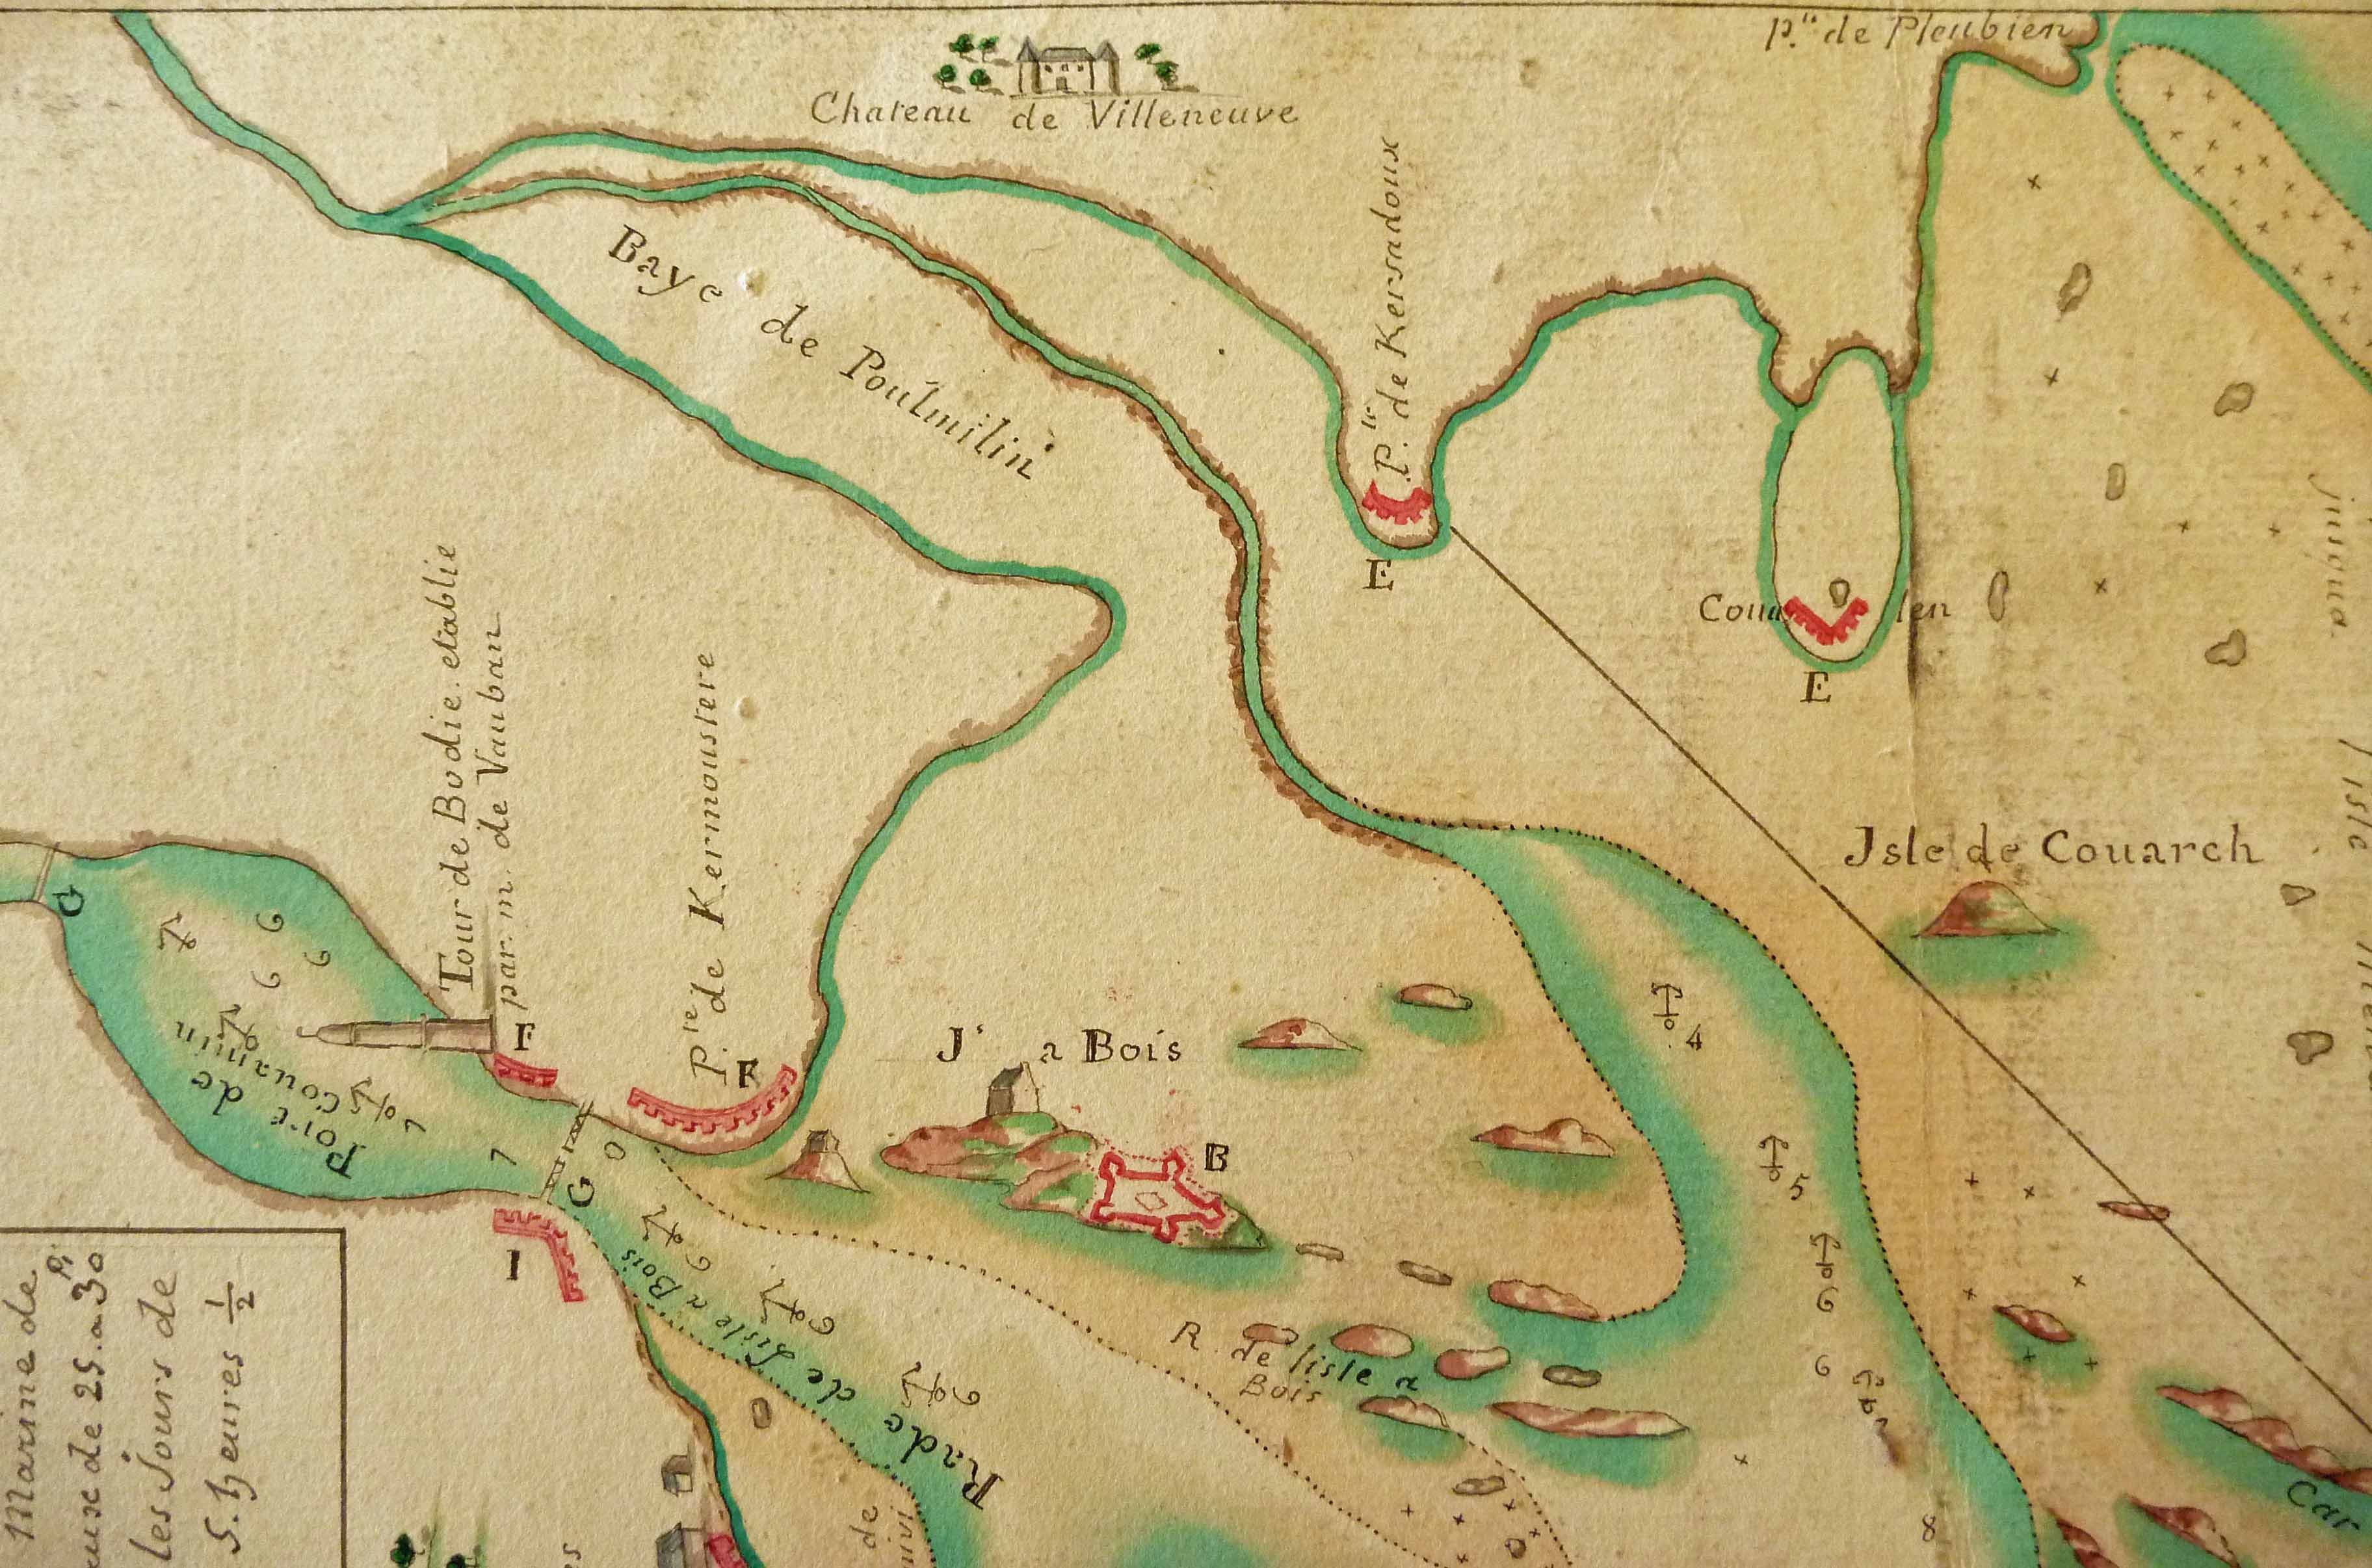 P.te de Pleubien
Chateau de Villeneuve
P.te de Kersadoux
Baye de Poulmilin
E
E
Tour de Bodie. etablie
par m. de Vauban
P.te de Kermoustere
Jsle de Couarch
G
6
6
6
F
F
J. a Bois
B
4
5
6
6
8
Port de
Couamin
7
7
G
I
6
6
6
Rade de Lisle a Bois
R. de lisle a
Bois
Marine de
aux de 25. a 30 Pi.
les Jours de
5. heures 1/2
de
Car